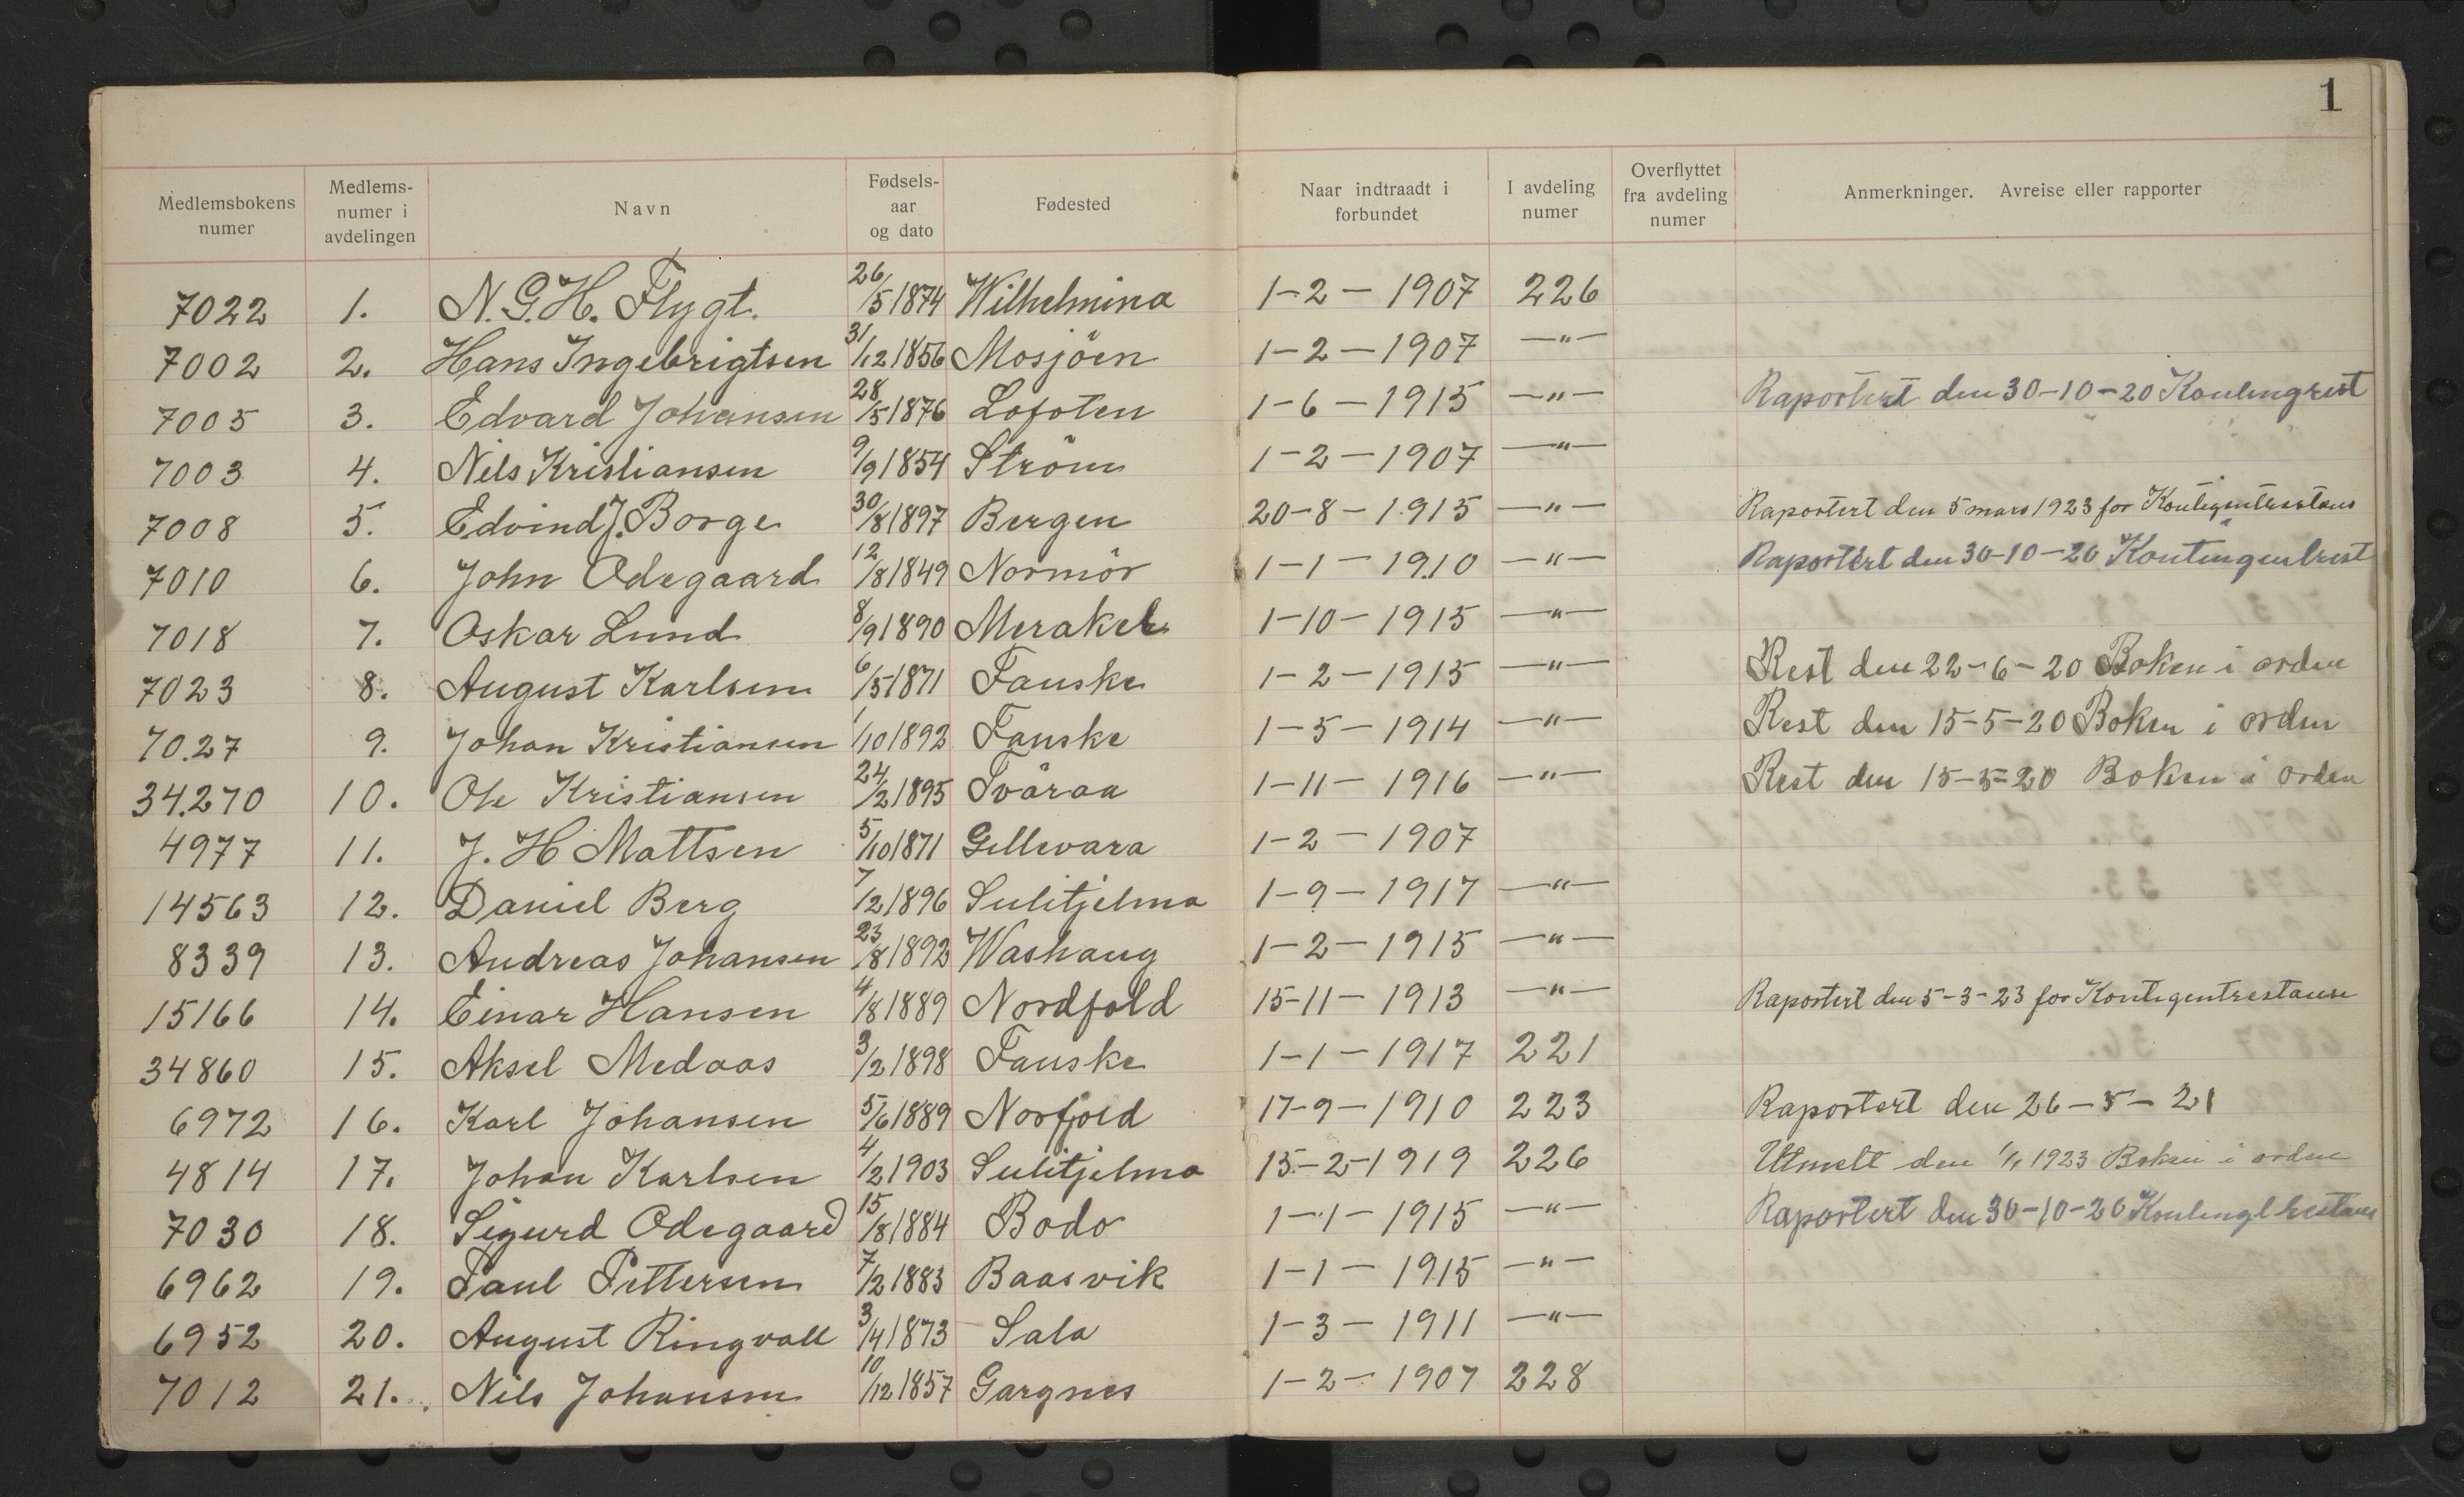 1
Medlemsbokens numer | Medlems-numer i avdelingen | Navn | Fødsels-aar og dato | Fødested | Naar indtraadt i forbundet | I avdeling numer | Overflyttet fra avdeling numer | Anmerkninger. Avreise eller rapporter
7022 1. N. G. H. Flygt. 26/5 1874 Wilhelmina 1-2-1907 226
7002 2. Hans Ingebrigtsen 31/12 1856 Mosjöen 1-2-1907 —"—
7005 3. Edvard Johansen 28/5 1876 Lofoten 1-6-1915 —"— Raportert den 30-10-20
7003 4. Nils Kristiansen 9/9 1854 Ström 1-2-1907 —"—
7008 5. Edvind J. Borge 30/8 1897 Bergen 20-8-1915 —"— Raportert den 5 mars 1923 for
7010 6. John Odegaard 12/8 1849 Normör 1-1-1910 —"— Raportert den 30-10-20 Kontingentrest
7018 7. Oskar Lund 8/9 1890 Meraker 1-10-1915 —"—
7023 8. August Karlsen 6/5 1871 Fauske 1-2-1915 —"— Rest den 22-6-20 Boken i orden
70.27 9. Johan Kristiansen 1/10 1892 Fauske 1-5-1914 —"— Rest den 15-5-20 Boken i orden
34.270 10. Ole Kristiansen 24/2 1895 Tväraa 1-11-1916 —"— Rest den 15-5-20 Boken i orden
4977 11. J. H Mattsen 5/10 1871 Gellevara 1-2-1907
14563 12. Daniel Berg 7/12 1896 Sulitjelma 1-9-1917 —"—
8339 13. Andreas Johansen 23/8 1892 Washaug 1-2-1915 —"—
15166 14. Einar Hansen 4/8 1889 Nordfold 15-11-1913 —"— Raportert den 5-3-23 for Kontigentrestanse
34860 15. Aksel Medaas 3/2 1898 Fauske 1-1-1917 221
6972 16. Karl Johansen 5/6 1889 Norfjord 17-9-1910 223 Raportert den 26-5-21
4814 17. Johan Karlsen 4/2 1903 Sulitjelma 15-2-1919 226 Utmelt den 1/1 1923 Boken i orden
7030 18. Sigurd Odegaard 15/8 1884 Bodo 1-1-1915 —"— Raportert den 30-10-20
6962 19. Paul Pettersen 7/2 1883 Baasvik 1-1-1915 —"—
6952 20. August Ringvall 3/4 1873 Sala 1-3-1911 —"—
7012 21. Nils Johansen 10/12 1857 Gargnes 1-2-1907 228